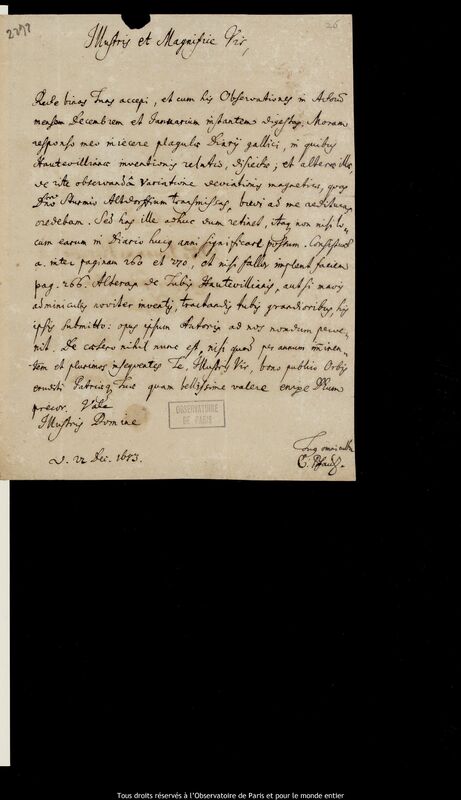 2292
26
Illustris et Magnifice Vir,
binas Tuas accepi, et cum his Observationes in
mensem Decembrem et Januarium instantem digestas. Moram
responso meo iniecere plagulæ Diarij gallici, in quibus
Hautevillianæ inventionis relatio, et alteræ illæ,
de rite observanda Variatione deviationis magneticæ, quas
Dno Sturmio Altdorffium transmissas, brevi ad me redituras
credebam. Sed has ille adhuc dum retinet, itaq non nisi lo-
cum earum in Diario hujq anni significare possum.
a. inter paginam 260 et 270, et nisi fallor implent faciem
pag. 266. Alteram de Tubis Hautevillianis, aut si mavis
adminiculis noviter inventis, tractandis tubis grandioribus, his
ipsis submitto: opus ipsum Autoris ad nos nondum perve-
nit. De cætero nihil nunc est, nisi quod per annum iminen-
tem et plurimos insequentes Te, Illustris Vir, bono publico Orbis
eruditi Patriæq Tuæ quam bellissime valere
precor. Vale
Illustris Domine
OBSERVATOIRE
DE PARIS
L. 22 Dec. 1683.
Tuus omni cultu
C. Pfautz.
Tous droits réservés à l'Observatoire de Paris et pour le monde entier